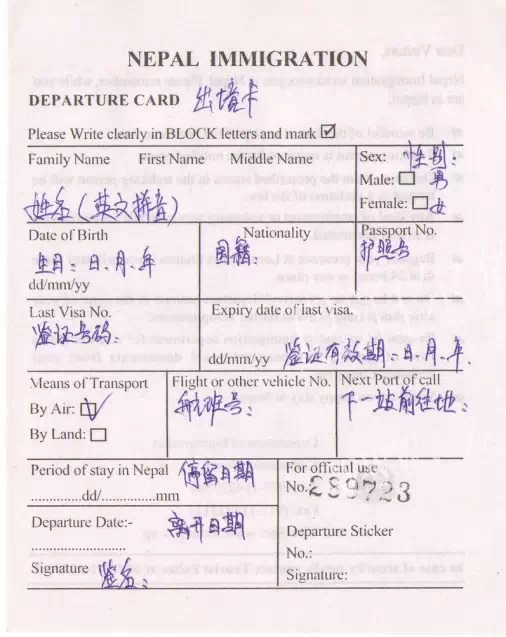 NEPAL IMMIGRATION
DEPARTURE CARD 出境卡
Please Write clearly in BLOCK letters and mark ☑
Family Name First Name Middle Name
姓名(英文拼音)
Sex: 性别:
Male: □ 男
Female: □ 女
Date of Birth
生日:日.月.年
dd/mm/yy
Nationality
国籍:
Passport No.
护照号
Last Visa No.
签证号码:
Expiry date of last visa.
dd/mm/yy 签证有效期:日.月.年.
Means of Transport
By Air: ☑
By Land: □
Flight or other vehicle No.
航班号:
Next Port of call
下一站前往地:
Period of stay in Nepal 停留日期
..............dd/..............mm
For official use
No.: 289723
Departure Date:- 离开日期
........................
Departure Sticker
No.:
Signature 签名:
Signature: